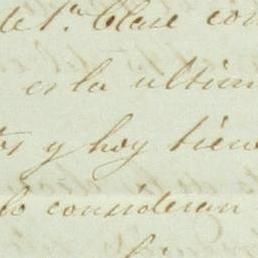 de 1ª clase con
es la ultim
y hoy tien
lo consideran